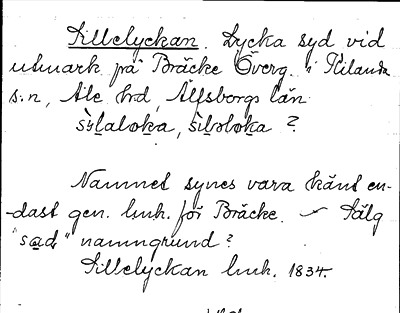 Sillelyckan. Lycka syd vid
utmark på Bräcke Överg. i Kilanda
s:n, Ale hd, Älfsborgs län
sìlalọka, sìlọlọka ?
Namnet synes vara känt en-
-dast gen. lmh. för Bräcke. — Sälg
"sad" namngrund?
Sillelyckan lmh. 1834.